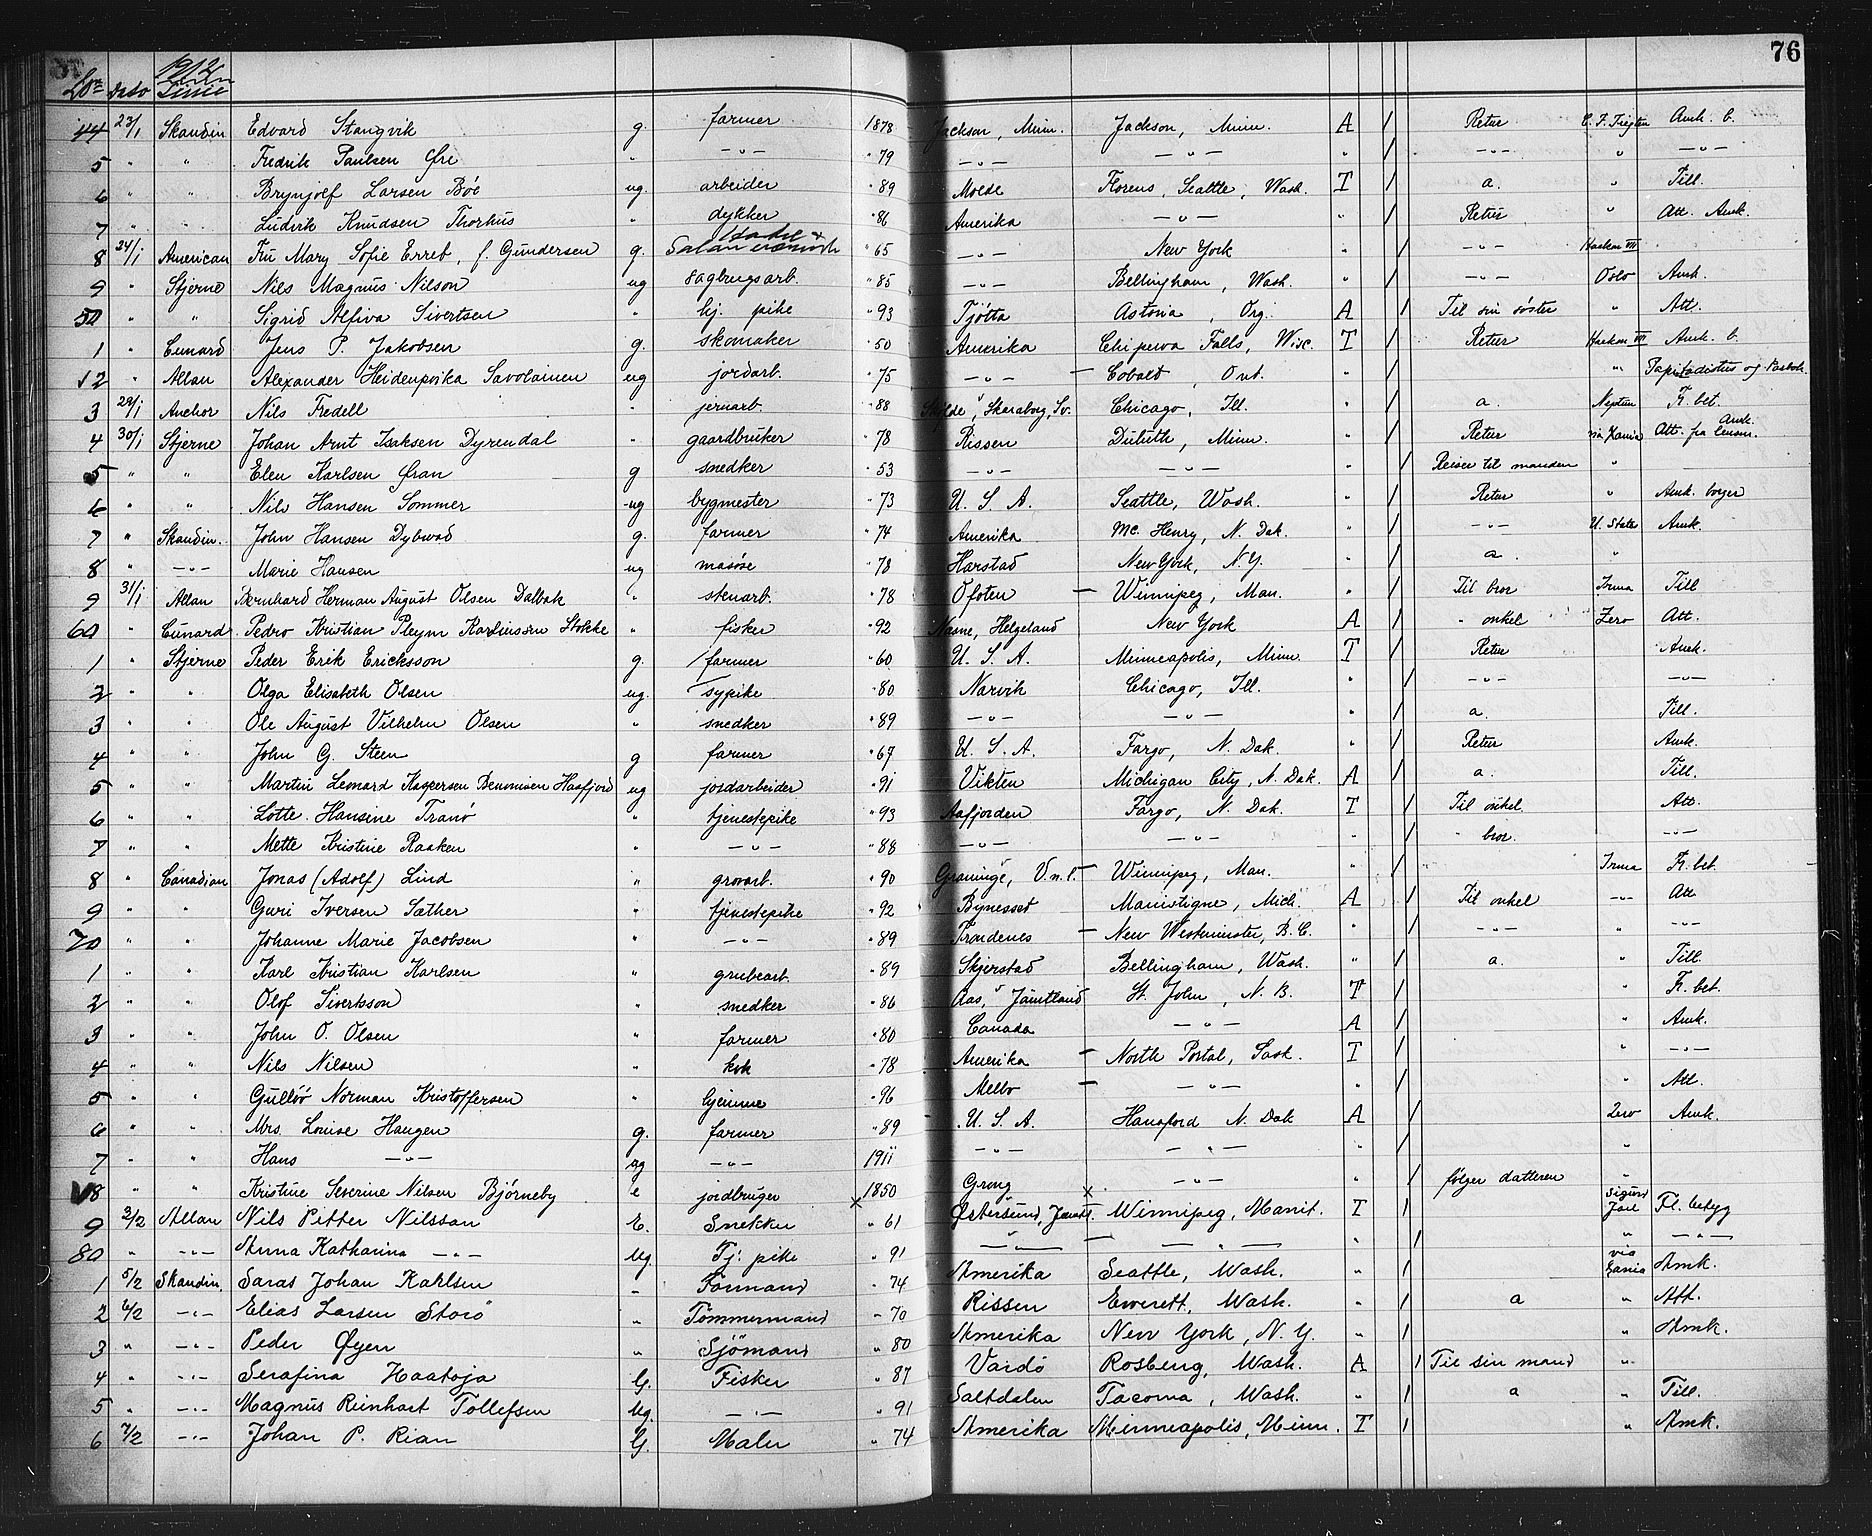 76
1912
No Dato Linie
44 23/1 Skandin Edvard Stangvik g. farmer 1878 Jackson, Minn. Jackson, Minn. A / Retur C. F. Tietgen Amk. b.
5 " " Fredrik Paulsen Øre " -"- " 79 -"- -"- " / -"- " -"-
6 " " Brynjolf Larsen Böe ug. arbeider " 89 Molde Florens, Seattle, Wash. T / a. " Till.
7 " " Ludvik Knudsen Thorhus " dykker " 86 Amerika -"- " / Retur " Att. Amk.
8 24/1 American Fru Mary Sofie Erreb, f. Gundersen g. " 65 -"- New York " / -"- Haakon VII
9 " Stjerne Nils Magnus Nilson ug sagbrugsarb. " 85 -"- Bellingham, Wash. " / -"- Oslo Amk.
50 " " Sigrid Alfiva Sivertsen " hj. pike " 93 Tjötta Astoria, Org. A / Til sin söster " Att.
1 " Cunard Jens P. Jakobsen g. skomaker " 50 Amerika Chipewa Falls, Wisc. T / Retur Haakon VII Amk. b.
12 " Allan Alexander Savolainen ug jordarb. " 75 -"- - Cobalt, Ont. " / "
3 29/1 Anchor Nils Fredell " jernarb. " 88 Skaraborg, Sv. Chicago, Ill. " / a. Neptun Fl. bet.
4 30/1 Stjerne Johan Arnt Isaksen Dyrendal " gaardbruker " 78 Rissen Duluth, Minn. " / Retur via Att. fra lensm. Amk.
5 " " Elen Karlsen Gran g snedker " 53 -"- -"- " / Reiser til manden "
6 " " Nils Hansen Sommer ug bygmester " 73 U. S. A. Seattle, Wash. " / Retur " Amk. borger
7 " Skandin. John Hansen Dybwad g. farmer " 74 Amerika Mc. Henry, N. Dak. " / -"- U. States Amk.
8 " -"- Marie Hansen ug masöse " 78 Harstad New York, N.Y. " / a. "
9 31/1 Allan Bernhard Herman August Olsen Dalbak " stenarb. " 78 Ofoten - Winnipeg, Man. " / Til bror Irma Till
60 " Cunard Pedro Kristian Pleym Karlinssen Stokke " fisker " 92 Nasne, Helgeland New York A / " onkel Zero Att.
1 " Stjerne Peder Erik Ericksson g. farmer " 60 U. S. A. Minneapolis, Minn. T / Retur Amk.
2 " " Olga Elisabeth Olsen ug. sypike " 80 Narvik Chicago, Ill. " / -"- -"-
3 " " Ole August Vilhelm Olsen " snedker " 89 -"- -"- " / a. Till.
4 " " John G. Steen g farmer " 67 U. S. A. Fargo, N. Dak. " / Retur Amk.
5 " " Martin Leonard Kaspersen Haafjord ug jordarbeider " 91 Vikten Michigan City, N. Dak. A / a. Till.
6 " " Lotte Hansine Tranö " tjenestepike " 93 Aafjorden Fargo, N. Dak. T / Til onkel Att.
7 " " Mette Kristine Raaken " -"- " 88 -"- -"- " / " bror. -"-
8 " Canadian Jonas (Adolf) Lind " grovarb. " 90 Graninge, V.n.l. - Winnipeg, Man. " / Irma Fl. bet.
9 " " Guri Iversen Sæther " tjenestepike " 92 Bynesset Manistigne, Mich. A / Til onkel -"- Att
70 " " Johanne Marie Jacobsen " -"- " 89 Trondenes - New Westminster, B.C. " / -"- " -"-
1 " " Karl Kristian Karlsen " grubearb. " 89 Skjerstad Bellingham, Wash. " / a. " Till.
2 " " Olof Sivertsson " snedker " 86 Aas, Jämtland St. John, N. B. T / " Fl. bet.
3 " " John O. Olsen " farmer " 80 Canada -"- A / " Amk.
4 " " Nils Nilsen " kok " 78 Amerika - North Portal, Sask. T / " -"-
5 " " Gullöv Norman Kristoffersen " hjemme " 96 Melbo - -"- " / " Att.
6 " " Mrs. Louise Haugen g. farmer " 89 U. S. A. Hansford N. Dak A / Zero Amk.
7 " " Hans -"- ug -"- 1911 -"- -"- " / "
8 " " Kristine Severine Nilsen Björneby e jordbruger 1850 Grong -"- " / følger datteren "
9 3/2 Allan Nils Petter Nilsson E. Snekker " 61 Østersund, Jämtl. Winnipeg, Manit. T / Sigurd Jarl Fl. betyg
80 " -"- Anna Katharina -"- Ug. Tj: pike " 91 -"- -"- " / " -"-
1 5/2 Skandin. Saras Johan Karlsen " Formand " 74 Amerika Seattle, Wash. " / via Zania Amk.
2 6/2 -"- Elias Larsen Storö " Tömmermand " 70 Rissen Ewerett, Wash. " / a " Att.
3 " -"- Peder Øyen " Sjömand " 80 Amerika New York, N. Y. " / " Amk.
4 " -"- Serafina Haatoja G. Fisker " 87 Vardö Rosberg, Wash. A / Til sin mand "
5 " -"- Magnus Reinhart Tollefsen Ug. -"- " 91 Saltdalen Tacoma, Wash. " / a " Till.
6 7/2 -"- Johan P. Rian G. Maler " 74 Amerika Minneapolis, Minn. T / " Amk.